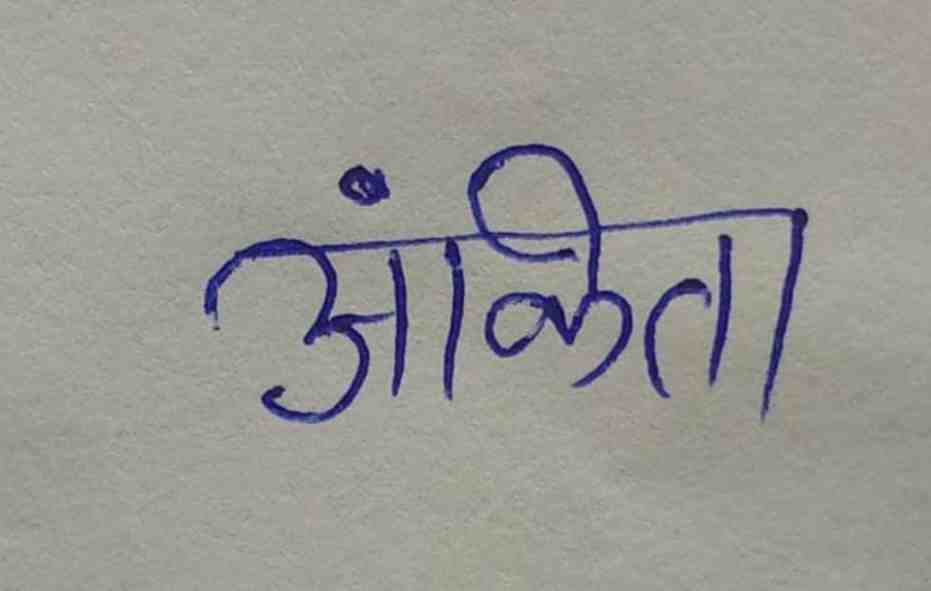 अंकिता